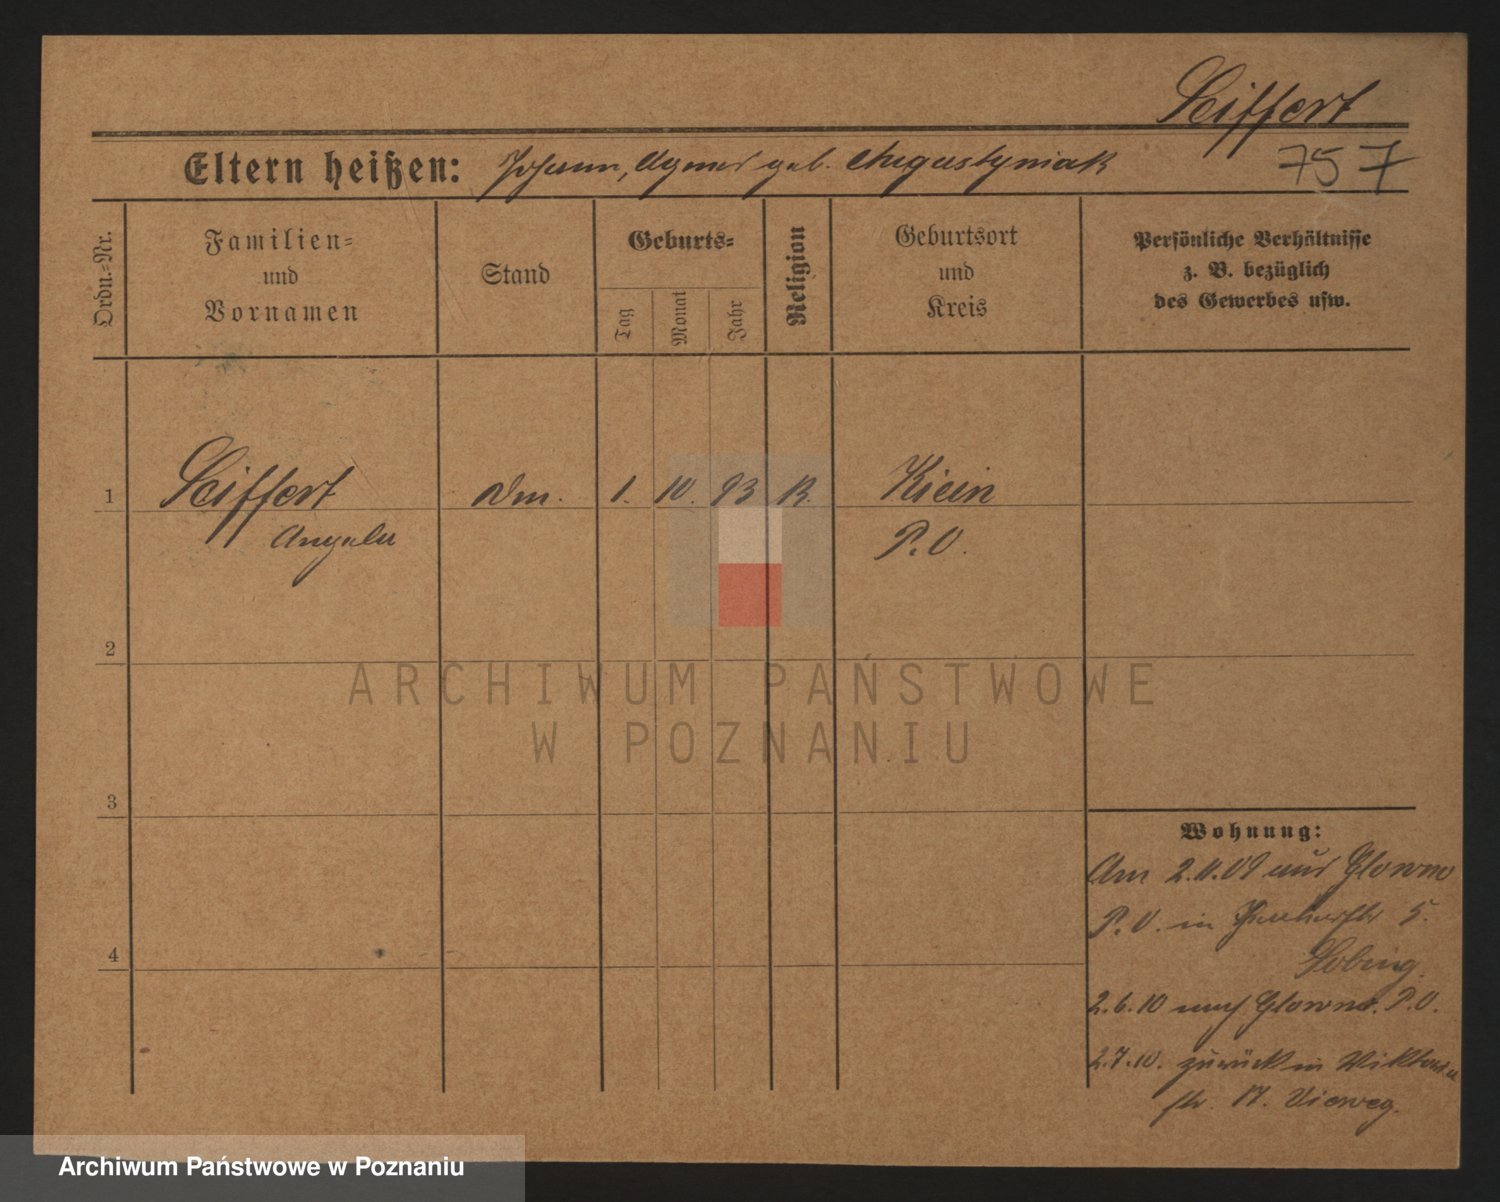 Seiffert
Eltern heißen: Johann, Agnes geb. Augustyniak
757
Ordn.-Nr.
Familien-
und
Vornamen
Stand
Geburts-
Tag
Monat
Jahr
Religion
Geburtsort
und
Kreis
Persönliche Verhältnisse
z. B. bezüglich
des Gewerbes usw.
1
Seiffert
Angela
1. 10. 93
Kicin
P. O.
2
3
4
Wohnung:
Am 2.11.09 aus Glowno
P. O. in 5.
2.6.10 nach Glowno. P. O.
2.7.10. zurück in Viktoria
str. 17. Vieweg.
ARCHIWUM PAŃSTWOWE
W POZNANIU
Archiwum Państwowe w Poznaniu